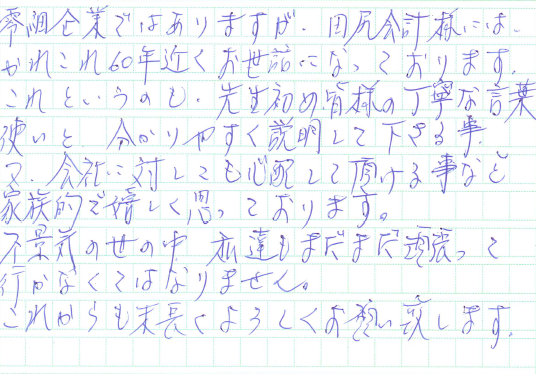 零細企業ではありますが、田尻会計様には、
かれこれ60年近くお世話になっております。
これというのも、先生初め皆様の丁寧な言葉
使いと、分かりやすく説明して下さる事、
又、会社に対しても心配して頂ける事など
家族的で嬉しく思っております。
不景気の世の中 私達もまだまだ頑張って
行かなくてはなりません。
これからも末長くよろしくお願い致します。